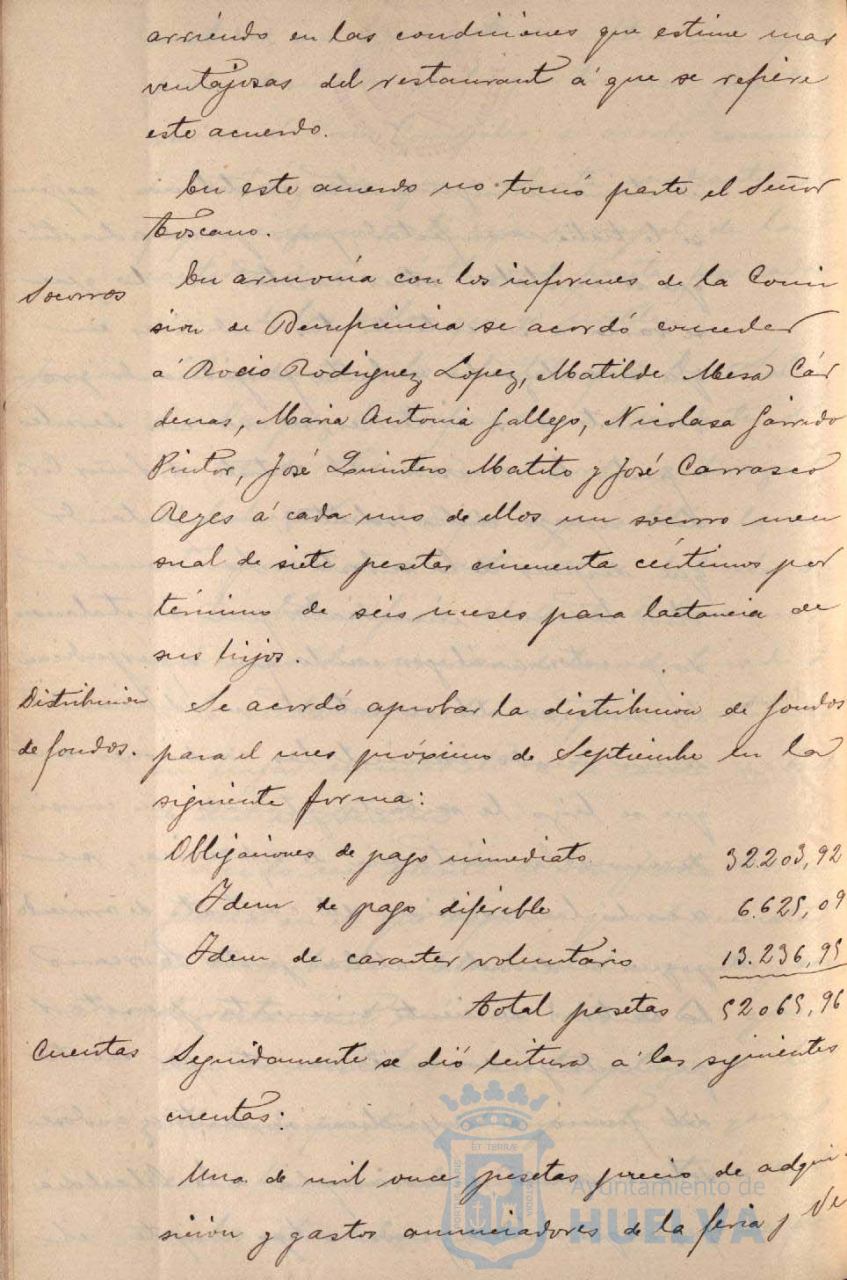 arriendo en las condiciones que estime mas
ventajosas del restaurant á que se refiere
este acuerdo.
En este acuerdo no tomó parte el Señor
Toscano.
Socorros
En armonía con los informes de la Comi
sion de Beneficencia se acordó conceder
á Rocio Rodriguez Lopez, Matilde Mesa Cár
denas, Maria Antonia Gallego, Nicolasa Garrido
Pintor, José Quintero Matito y José Carrasco
Reyes á cada uno de ellos un socorro men
sual de siete pesetas cincuenta céntimos por
término de seis meses para lactancia de
sus hijos.
Distribucion
de fondos.
Se acordó aprobar la distribucion de fondos
para el mes próximo de Septiembre en la
siguiente forma:
Obligaciones de pago inmediato 32.203,92
Idem de pago diferible 6.625,09
Idem de caracter voluntario 13.236,95
Total pesetas 52065,96
Cuentas
Seguidamente se dió lectura á las siguientes
cuentas:
Una de mil once pesetas precio de adqui-
sición y gastos anunciadores de la feria y Ve
ET TERRÆ
Ayuntamiento de
HUELVA